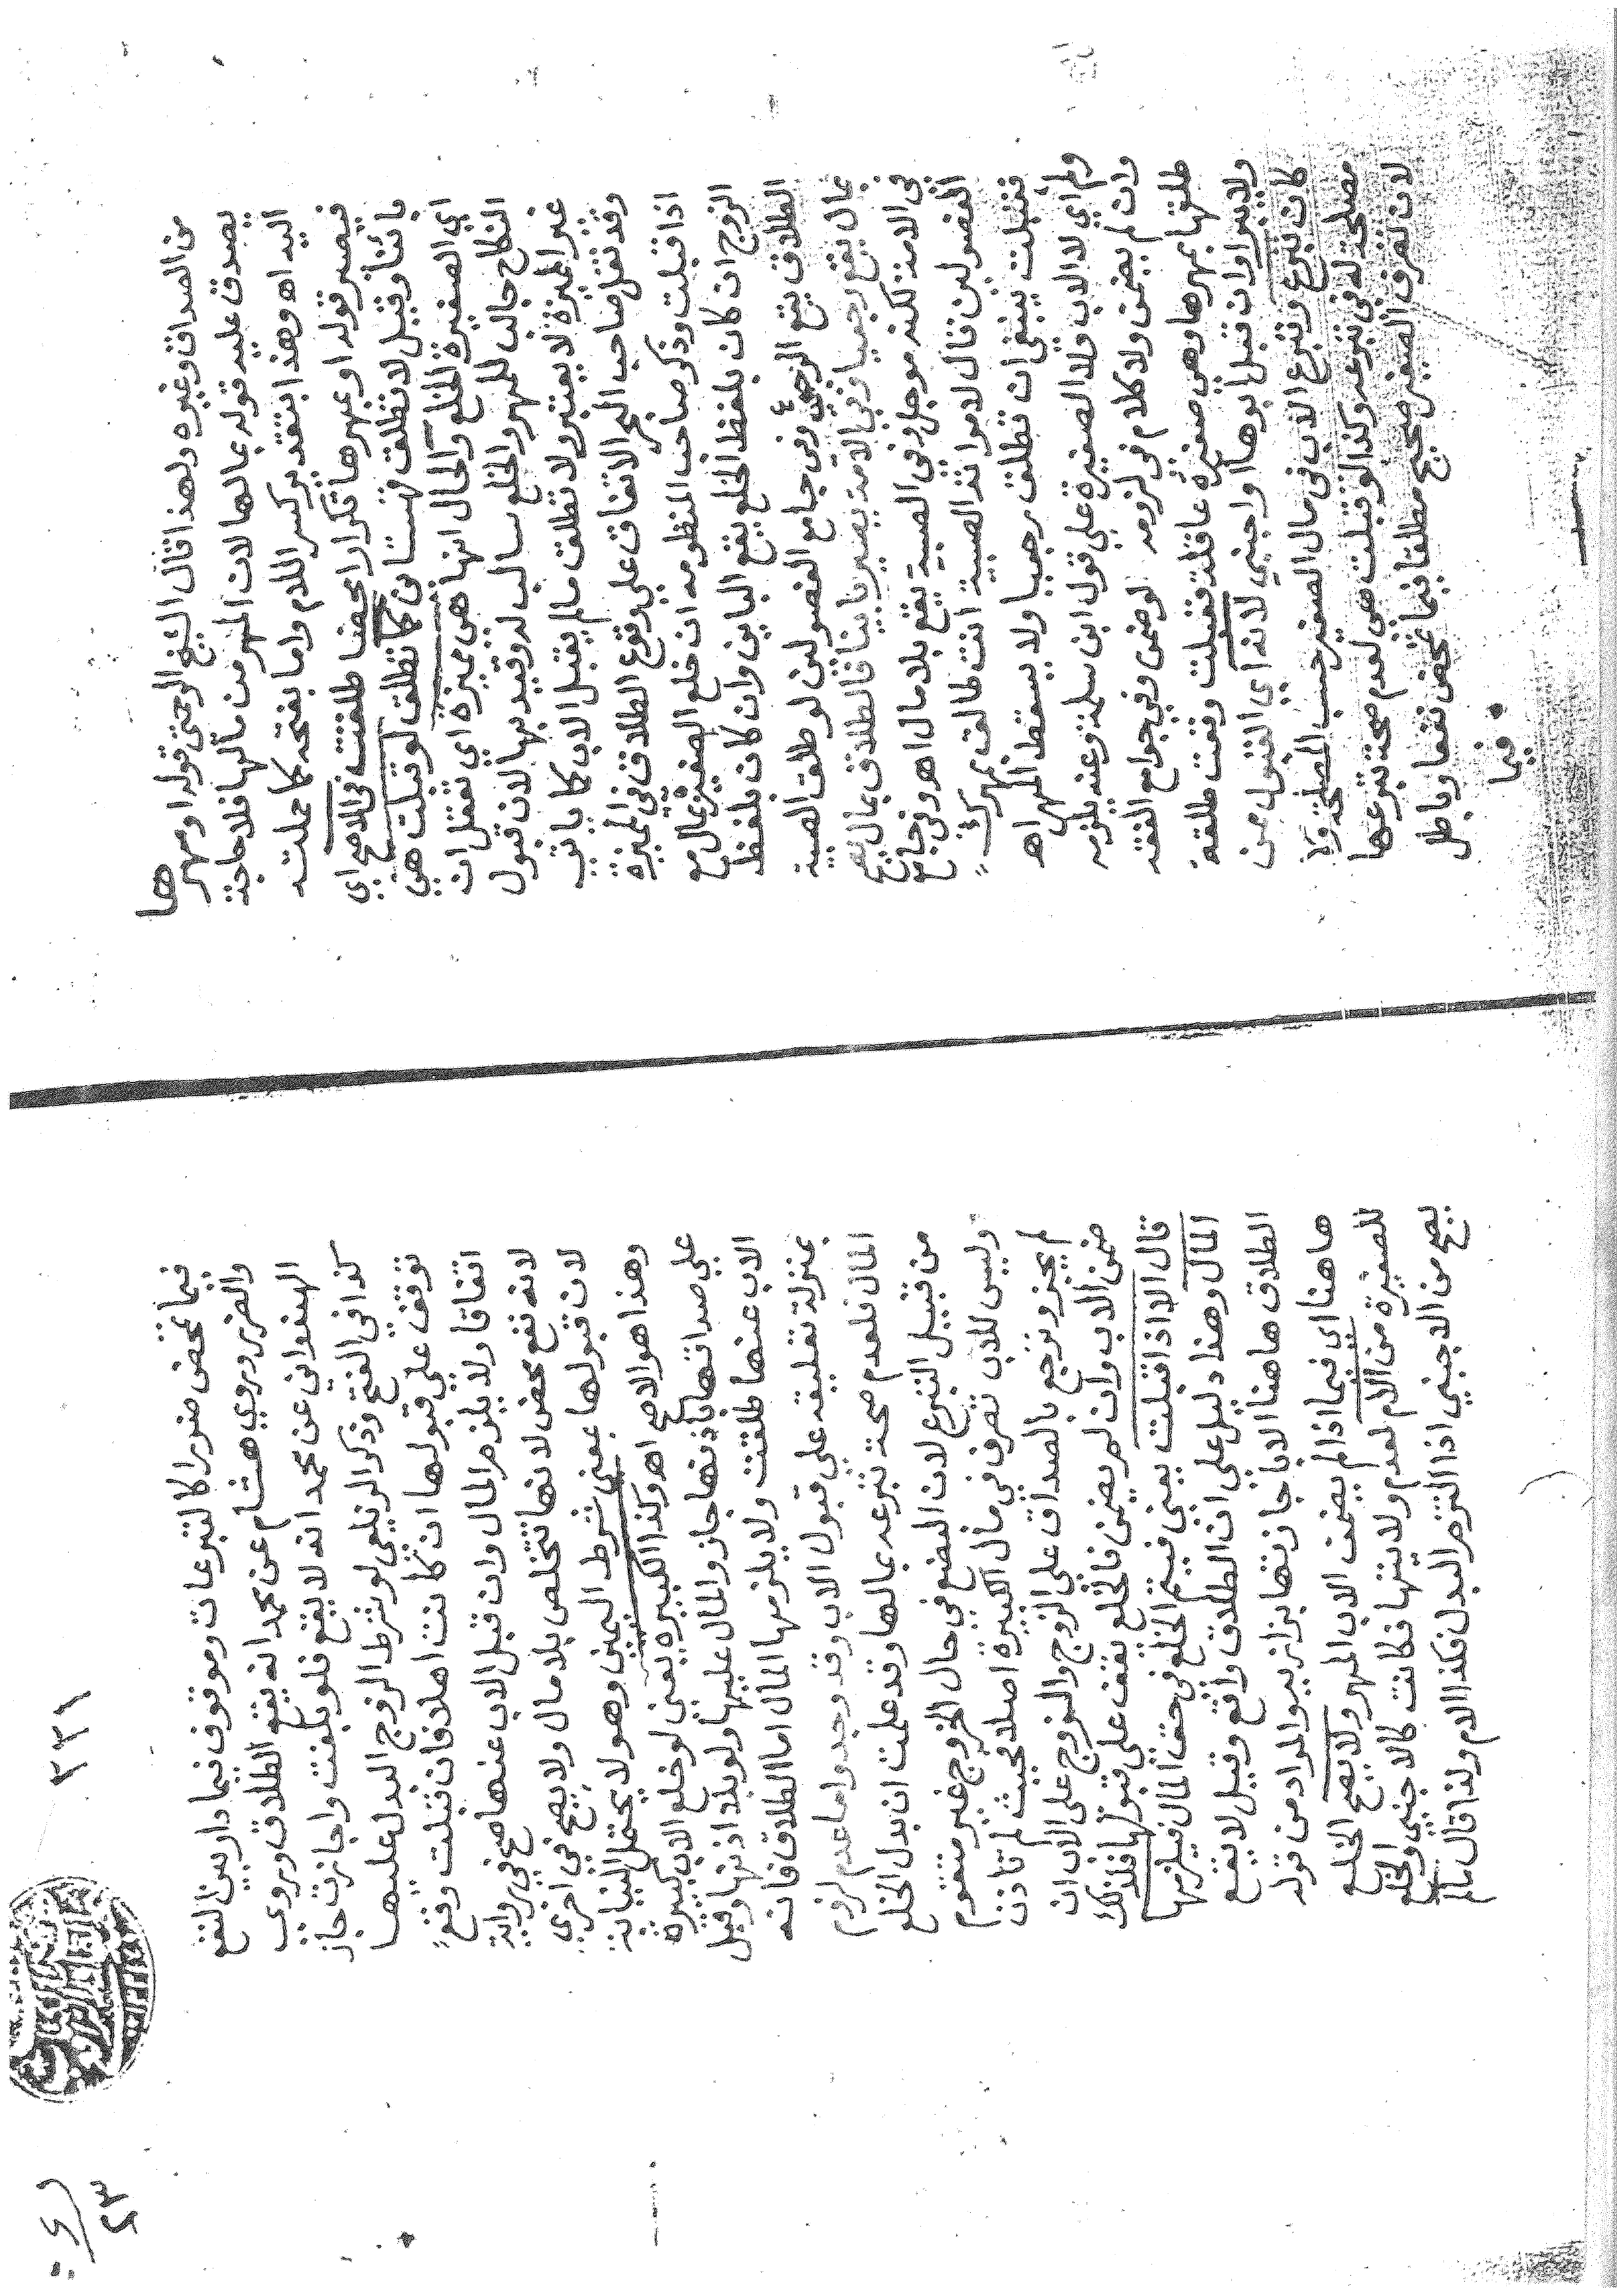 من الصداق وغيره ولهذا قال الشيخ الرحمتي قوله او مهرها
يصدق عليه قوله بمالها لان المهر من مالها فلا حاجة
اليه اه وهذا بتقدير كسر اللام واما بفتحه كما حملته
فيصير قوله او مهرها تكرارا محضا طلقت في الاصح اي
بائنا وقيل لا تطلق قهستاني كما تطلق لو قبلت هي
اي الصغيرة الخلع والحال انها هي مميزة اي تعقل ان
النكاح جالب للمهر والخلع سالب له وقيد بها لان قبول
غير المميزة لا يعتبر ولا تطلق مالم يقبل الاب كما ياتي
وقد نقل صاحب البحر الاتفاق على وقوع الطلاق في المميزة
اذا قبلت وذكر صاحب المنظومه ان خلع الصغيرة بمال مع
الزوج ان كان بلفظ الخلع يقع الباين وان كان بلفظ
الطلاق يقع الرجعي وفي جامع الفصولين لو طلق الصبية
بمال يقع رجعيا وفي الامة يصير باينا فالطلاق بمال يصح
في الامة لكنه موجل وفي الصبية يقع بلا مال اه وفي جامع
الفصولين قال لامراته الصبية انت طالق بمهرك
فقبلت ينبغي ان تطلق رجعيا ولا يسقط المهر اه
ولم اي لا الاب ولا الصغيرة على قول ابن سلمة وعنه يلزمه
وان لم يضمن ولا كلام في لزومه لو ضمن وفي جوامع الفقه
طلقها بمهرها وهي صغيرة عاقلة فقبلت وقعت طلقة
ولا يبرا وان قبل ابوها او اجنبي لانه اي القبول ممن
كان تبرع وتبرع الاب في مال الصغير حسب المصلحة ولا
مصلحة له في تبرعه وكذا لو قبلت هي لعدم صحة تبرعها
لان تصرف الصغير صحيح مطلقا فيما تمحض نفعا وباطل
فيما
٢٢١
فيما تمحض ضررا كالتبرعات وموقوف فيما دار بين النفع
والضرر وروي هشام عن محمد انه يقع الطلاق وروى
الهندواني عن محمد انه لا يقع فلو بلغت واجازت جاز
كذا في الفتح وذكر الزيلعي لو شرط الزوج البدل عليها
توقف على قبولها ان كانت اهلا فان قبلت وقع
اتفاقا ولا يلزم المال وان قبل الاب عنها صح في رواية
لانه نفع محض لانها تتخلص بلا مال ولا يصح في اخرى
لان قبولها بمعنى شرط اليمين وهو لا يحتمل النيابة
وهذا هو الاصح اه وكذا الكبيره يعني لو خلع الاب كبيرة
على صداقها باذنها جاز والمال عليها ولو بلا اذنها وقبل
الاب عنها طلقت ولا يلزمها المال اما الطلاق فانه
بمنزلة تعليقه على قبول الاب وقد وجد واما عدم لزوم
المال فلعدم صحة تبرعه بمالها وقد علمت ان بدل الخلع
من قبيل التبرع لان البضع في حال الخروج غير متقوم
وليس للاب تصرف في مال الكبيرة اصلا بحيث لم تاذن
لم يجز وترجع بالصداق على الزوج والزوج على الاب ان
ضمن الاب وان لم يضمن فالخلع يقف على قبولها فلذلك
قال الا اذا قبلت يعني فيتم الخلع في حق المال فيلزمها
المال وهذا دليل على ان الطلاق واقع وقيل لا يقع
الطلاق هاهنا الا باجازتها بزازيه والمراد من قوله
هاهنا اي فيما اذا لم يضمن الاب المهر ولا يصح الخلع
للصغيرة من الام لعدم ولايتها فكانت كالاجنبي والخلع
يصح من الاجنبي اذا التزم البدل فكذا الام ولذا قال مالم